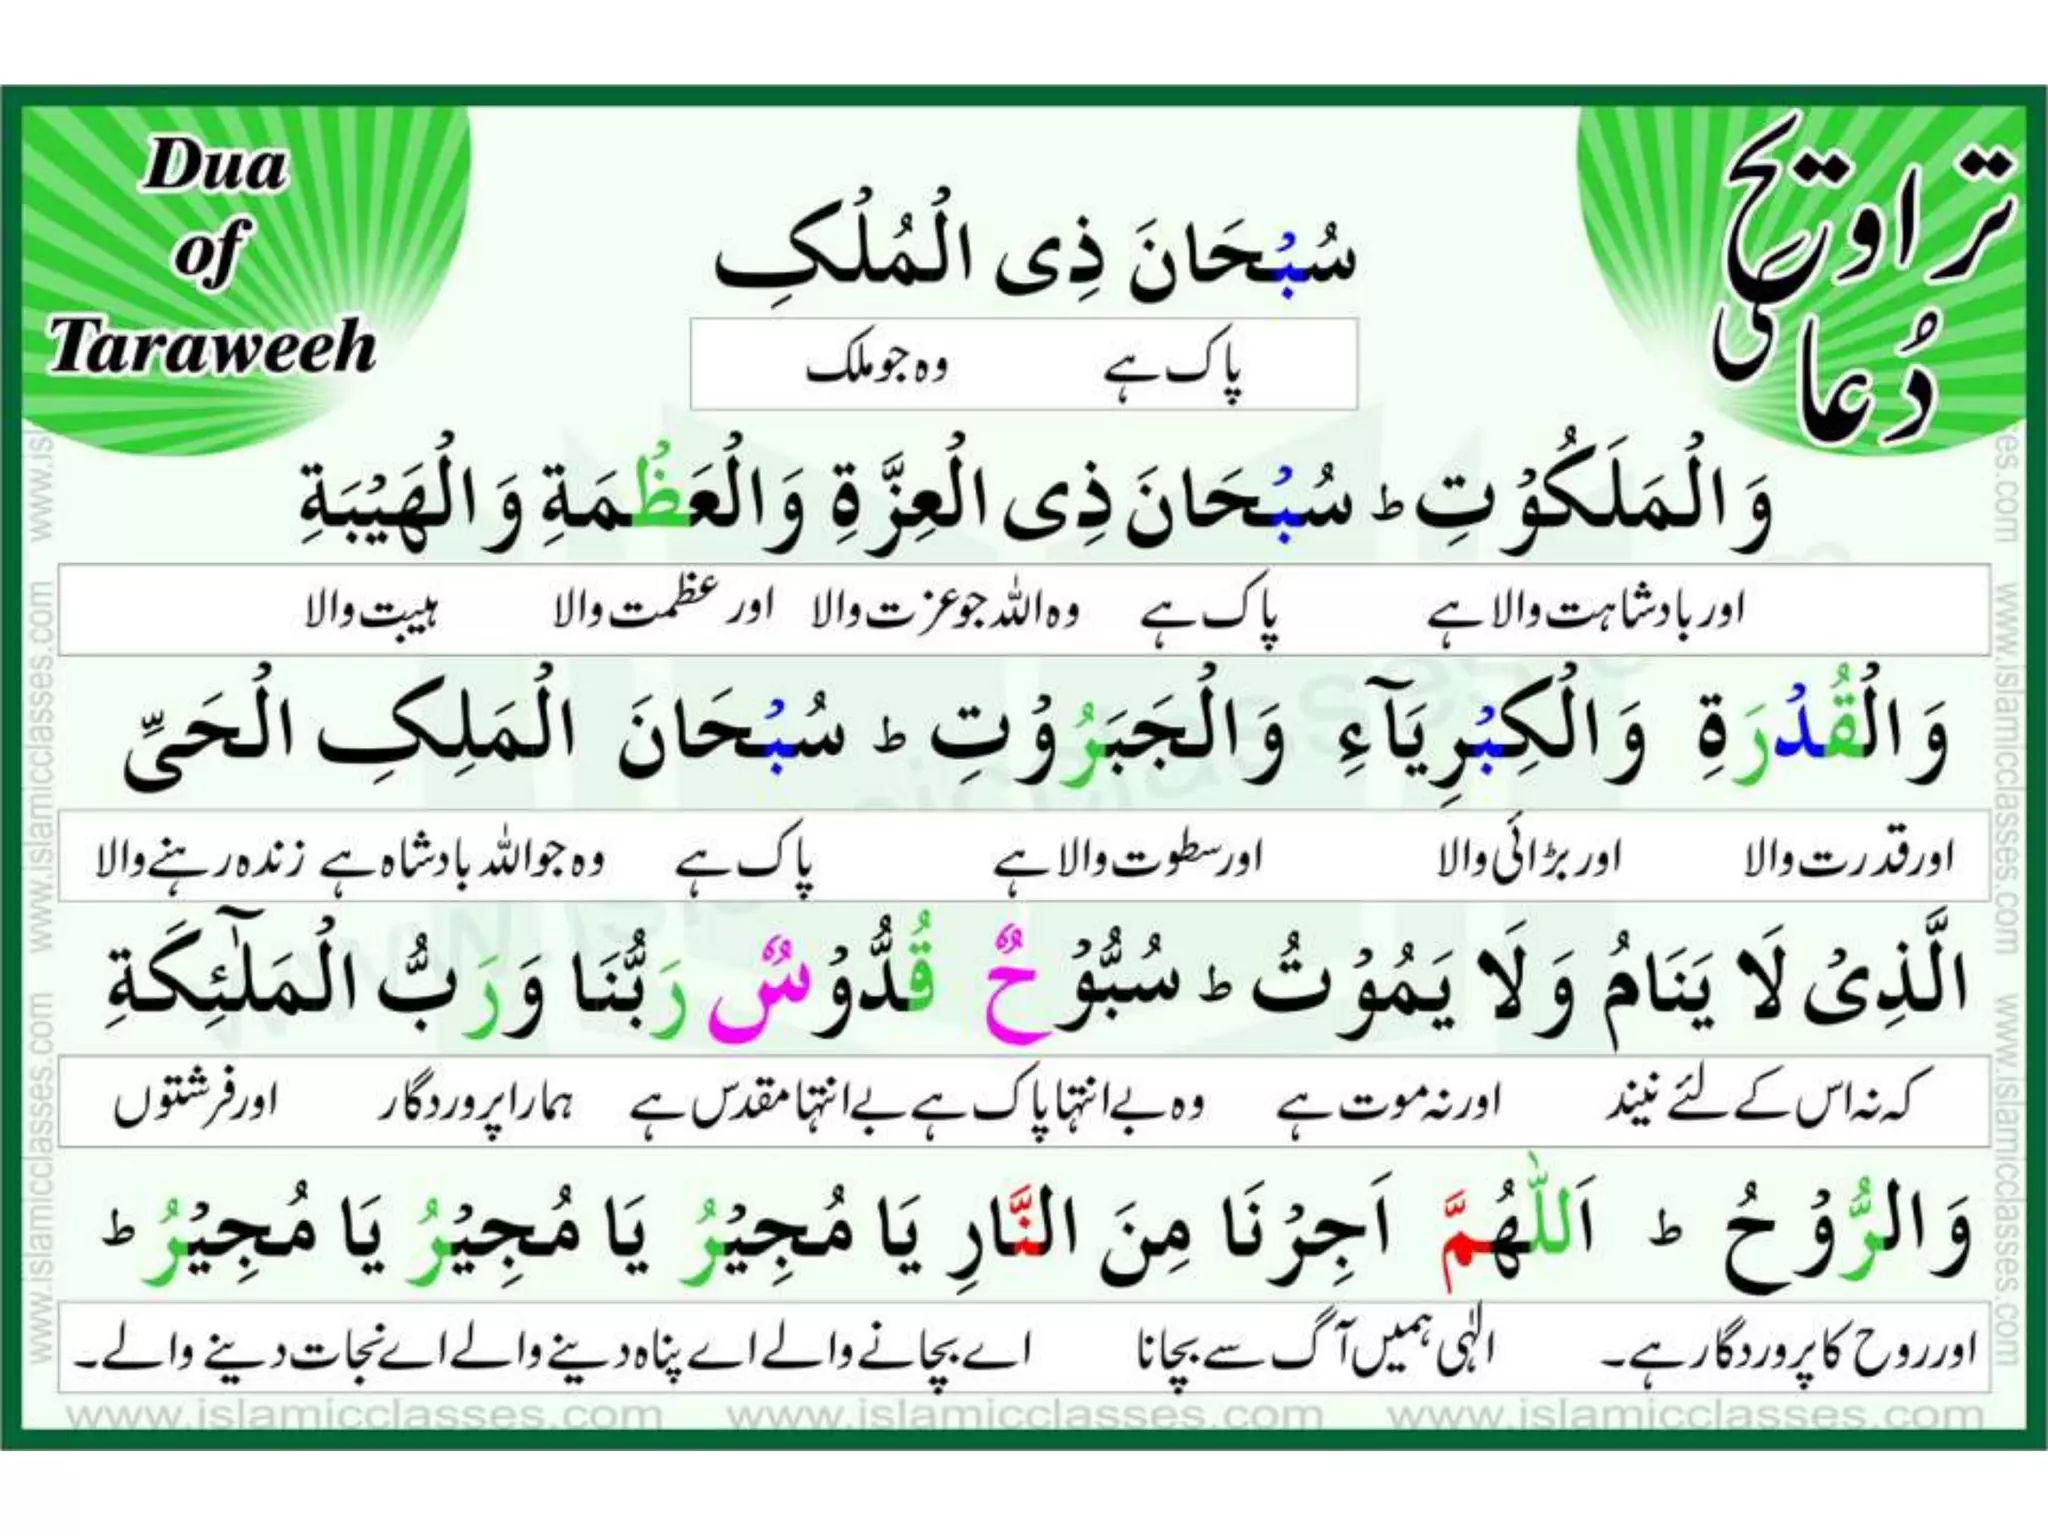 Dua
of
Taraweeh
تراویح
کی
دُعا
سُبْحَانَ ذِی الْمُلْکِ
پاک ہے وہ جو ملک
وَالْمَلَکُوْتِ ط سُبْحَانَ ذِی الْعِزَّةِ وَالْعَظْمَةِ وَالْهَيْبَةِ
اور بادشاہت والا ہے پاک ہے وہ اللہ جو عزت والا اور عظمت والا ہیبت والا
وَالْقُدْرَةِ وَالْکِبْرِيَآءِ وَالْجَبَرُوْتِ ط سُبْحَانَ الْمَلِکِ الْحَیِّ
اور قدرت والا اور بڑائی والا اور سطوت والا ہے پاک ہے وہ جو اللہ بادشاہ ہے زندہ رہنے والا
الَّذِیْ لَا يَنَامُ وَلَا يَمُوْتُ ط سُبُّوْحٌ قُدُّوْسٌ رَبُّنَا وَرَبُّ الْمَلٰٓئِکَةِ
کہ نہ اس کے لئے نیند اور نہ موت ہے وہ بے انتہا پاک ہے بے انتہا مقدس ہے ہمارا پروردگار اور فرشتوں
وَالرُّوْحُ ط اَللّٰهُمَّ اَجِرْنَا مِنَ النَّارِ يَا مُجِيْرُ يَا مُجِيْرُ يَا مُجِيْرُ ط
اور روح کا پروردگار ہے۔ الٰہی ہمیں آگ سے بچانا اے بچانے والے اے پناہ دینے والے اے نجات دینے والے۔
www.islamicclasses.com www.islamicclasses.com www.islamicclasses.com